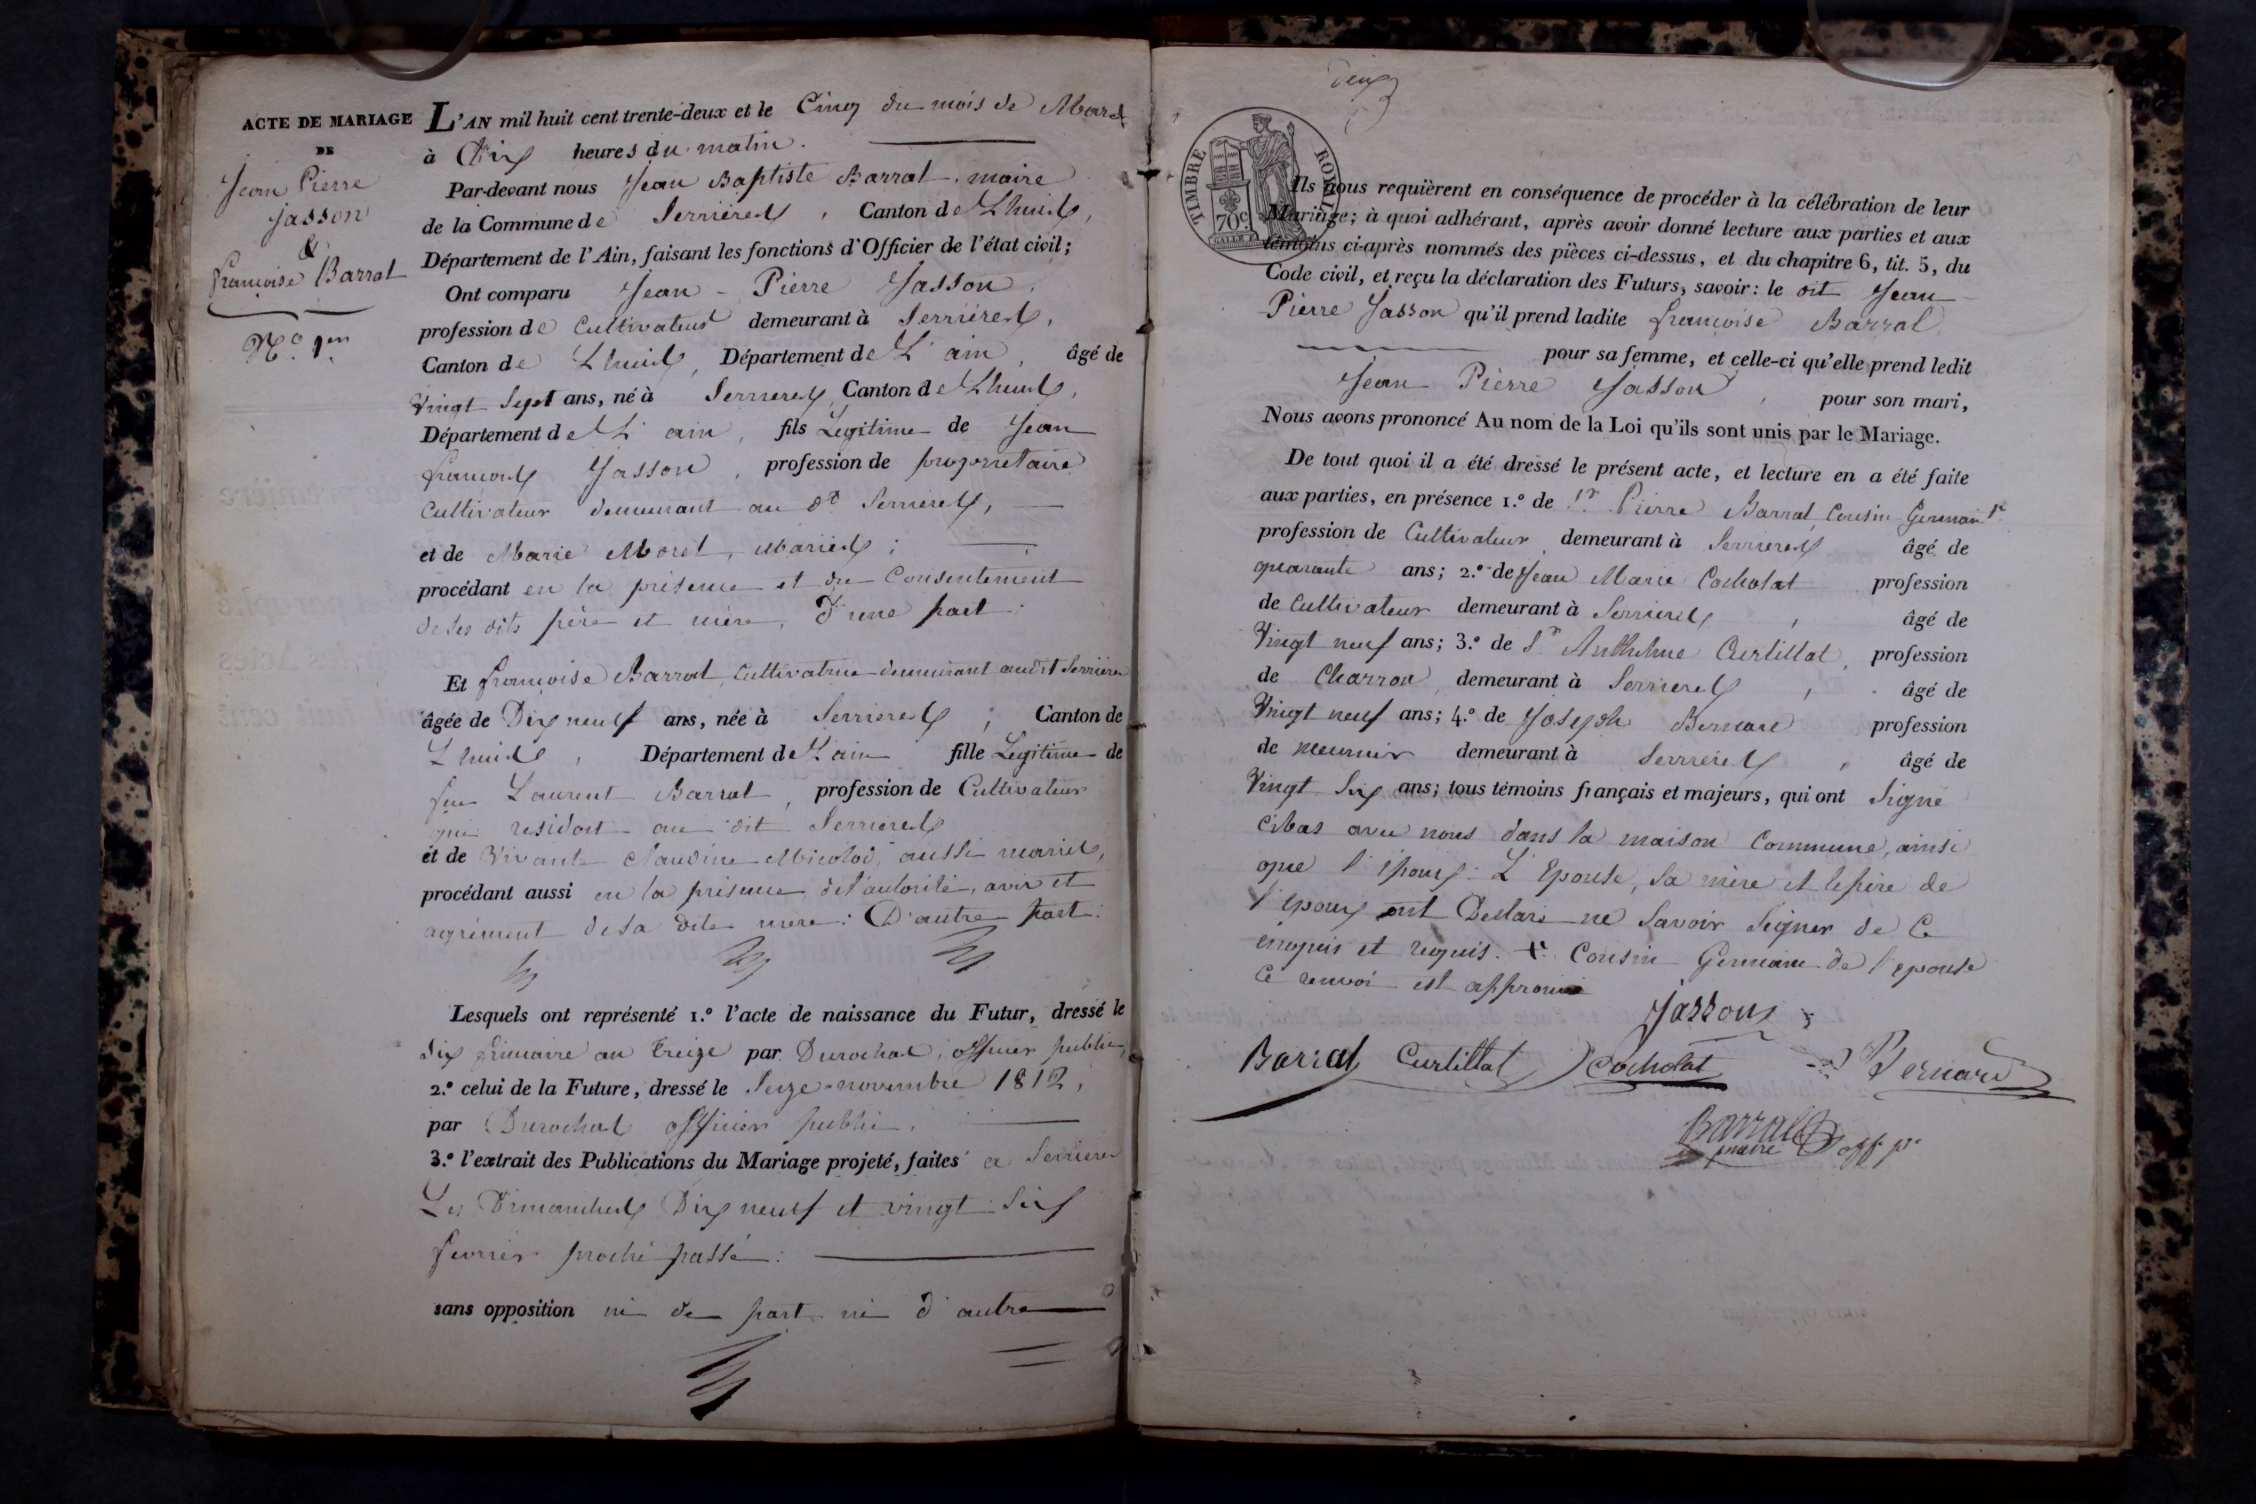 ACTE DE MARIAGE
DE
Jean Pierre
Jasson
&
françoise Barral
N.º 1er
L'AN mil huit cent trente-deux et le Cinq du mois de Mars
à Dix heures du matin.
Par-devant nous Jean Baptiste Barral, maire
de la Commune de Serrieres, Canton de Lhuis,
Département de l'Ain, faisant les fonctions d'Officier de l'état civil;
Ont comparu Jean - Pierre Jasson,
profession de Cultivateur demeurant à Serrieres,
Canton de Lhuis, Département de L'ain, âgé de
Vingt Sept ans, né à Serrieres, Canton de Lhuis,
Département de L'ain, fils Legitime de Jean
françois Jasson, profession de proprietaire
Cultivateur demeurant au dt Serrieres,
et de Marie Moret, mariés;
procédant en la présence et du Consentement
de ses dits père et mère, D'une part:
Et françoise Barral, Cultivatrice demeurant audit Serrieres
âgée de Dix neuf ans, née à Serrieres, Canton de
Lhuis, Département de L'ain fille Legitime de
feu Laurent Barral, profession de Cultivateur
qui residoit au dit Serrieres
et de Vivante Claudine aussi mariés,
procédant aussi en la présence, de l'autorité, avis et
agrément de sa dite mère: D'autre part:
Lesquels ont représenté 1.º l'acte de naissance du Futur, dressé le
six frimaire an treize par Durochat, officier public,
2.º celui de la Future, dressé le Seize novembre 1812,
par Durochat officier public,
3.º l'extrait des Publications du Mariage projeté, faites a Serrieres
Les Dimanches Dix neuf et vingt Six
fevrier proche passé:
sans opposition ni de part ni d'autre
deux
TIMBRE ROYAL
70c.
Ils nous requièrent en conséquence de procéder à la célébration de leur
Mariage; à quoi adhérant, après avoir donné lecture aux parties et aux
témoins ci-après nommés des pièces ci-dessus, et du chapitre 6, tit. 5, du
Code civil, et reçu la déclaration des Futurs, savoir: le dit Jean
Pierre Jasson qu'il prend ladite françoise Barral
pour sa femme, et celle-ci qu'elle prend ledit
Jean Pierre Jasson, pour son mari,
Nous avons prononcé Au nom de la Loi qu'ils sont unis par le Mariage.
De tout quoi il a été dressé le présent acte, et lecture en a été faite
aux parties, en présence 1.º de Sr. Pierre Barral, Cousin Germain
profession de Cultivateur, demeurant à Serrieres âgé de
quarante ans; 2.º de Jean Marie Cocholat profession
de Cultivateur demeurant à Serrieres, âgé de
Vingt neuf ans; 3.º de Sr Anthelme Curtillat, profession
de Charron, demeurant à Serrieres, âgé de
Vingt neuf ans; 4.º de Joseph Bernard profession
de meunier demeurant à Serrieres, âgé de
Vingt Six ans; tous témoins français et majeurs, qui ont Signé
cibas avec nous dans la maison Commune, ainsi
que l'époux: L'Epouse, sa mère et le père de
l'epoux ont Declaré ne Savoir Signer de Ce
enquis et requis. + Cousin Germain de l'epouse
Ce renvoi est approuvé
Jasson
Barral Curtillat Cocholat Bernard
Barral
maire off. pc